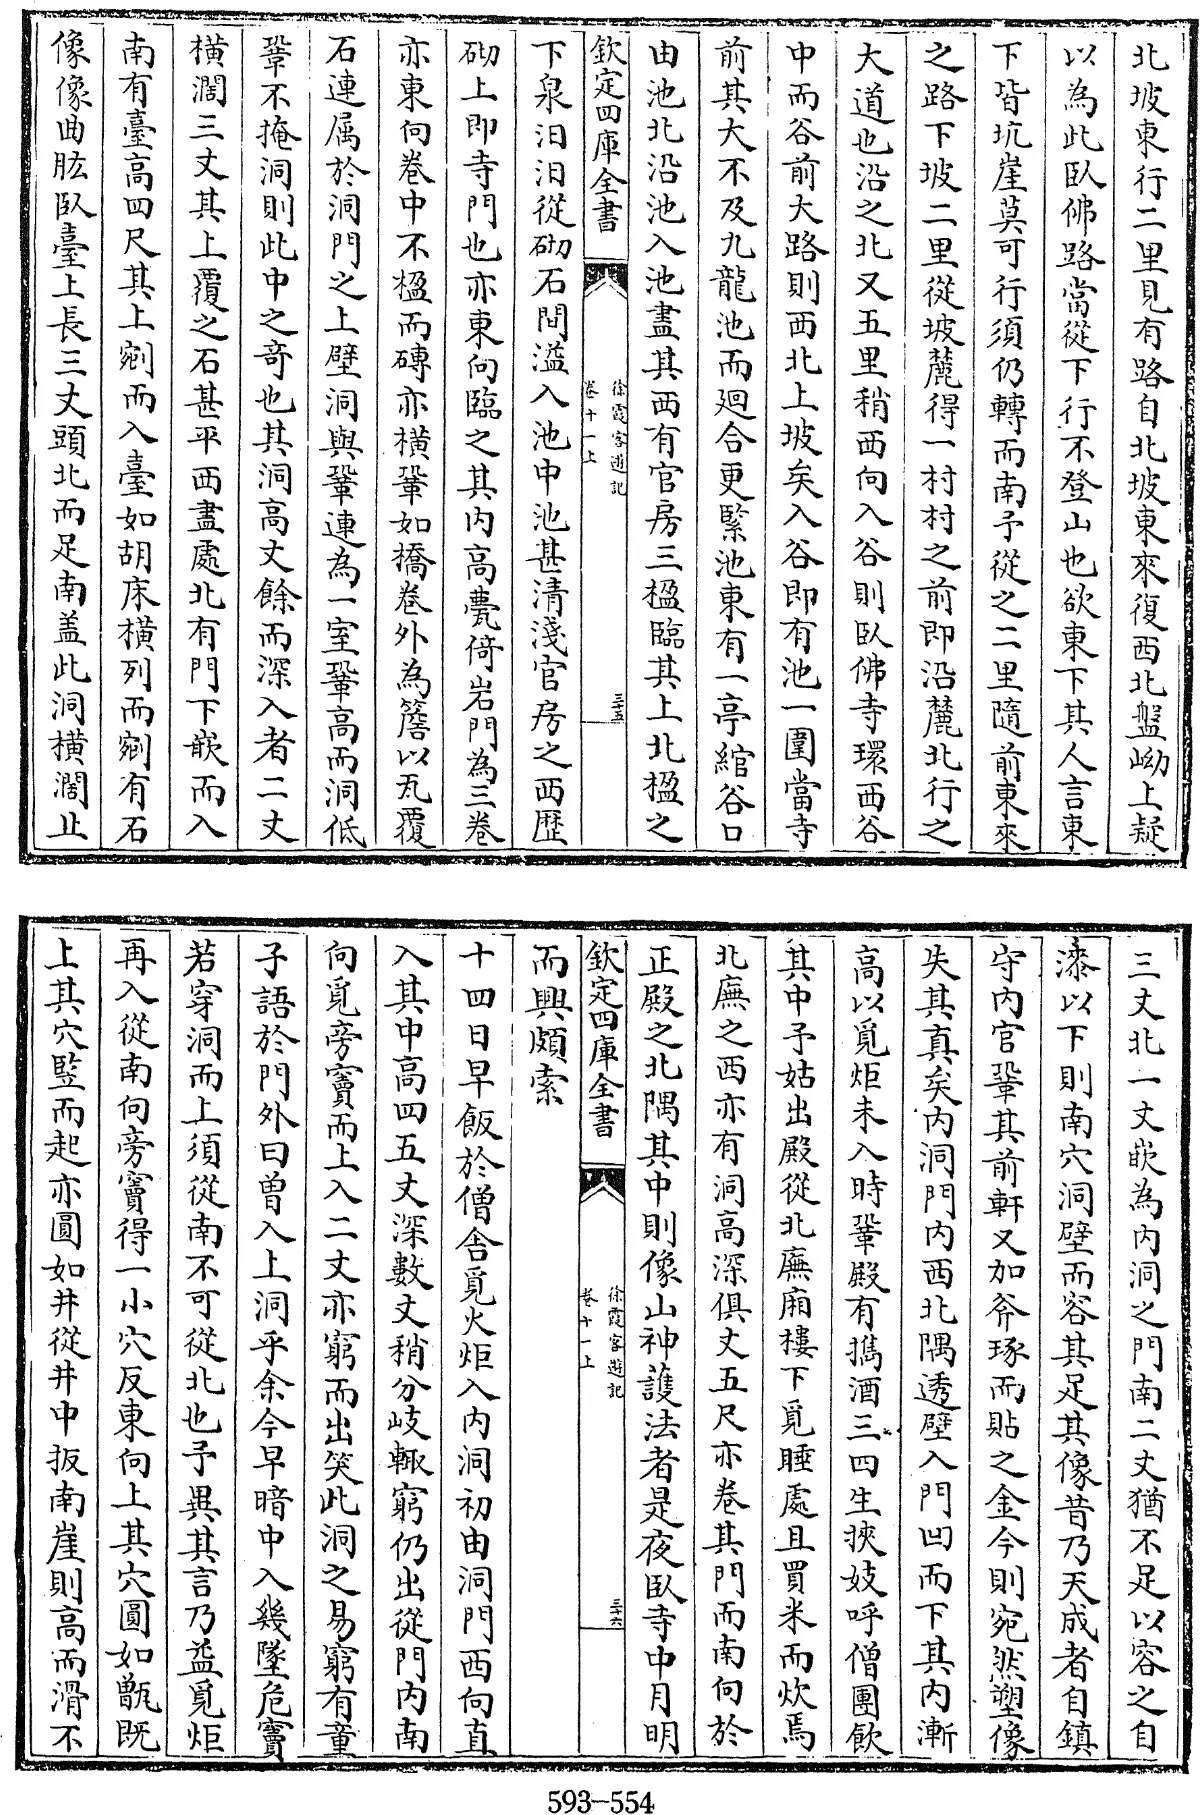 北坡東行二里見有路自北坡東來復西北盤坳上疑
以為此臥佛路當從下行不登山也欲東下其人言東
下皆坑崖莫可行須仍轉而南予從之二里隨前東來
之路下坡二里從坡麓得一村村之前即沿麓北行之
大道也沿之北又五里稍西向入谷則臥佛寺環西谷
中而谷前大路則西北上坡矣入谷即有池一圍當寺
前其大不及九龍池而廻合更緊池東有一亭綰谷口
由池北沿池入池盡其西有官房三楹臨其上北楹之
欽定四庫全書
徐霞客遊記
卷十一上
三十五
下泉汩汩從砌石間溢入池中池甚清淺官房之西歷
砌上即寺門也亦東向臨之其内高甍倚岩門為三卷
亦東向卷中不楹而磚亦横鞏如橋卷外為簷以瓦覆
石連属於洞門之上壁洞與鞏連為一室鞏高而洞低
鞏不掩洞則此中之奇也其洞高丈餘而深入者二丈
横濶三丈其上覆之石甚平西盡處北有門下嵌而入
南有臺高四尺其上剜而入臺如胡床横列而剜有石
像像曲肱臥臺上長三丈頭北而足南盖此洞横濶止
三丈北一丈嵌為内洞之門南二丈猶不足以容之自
漆以下則南穴洞壁而容其足其像昔乃天成者自鎮
守内官鞏其前軒又加斧琢而貼之金今則宛然塑像
失其真矣内洞門内西北隅透壁入門凹而下其内漸
高以覓炬未入時鞏殿有携酒三四生挾妓呼僧團飲
其中予姑出殿從北廡廂樓下覓睡處且買米而炊焉
北廡之西亦有洞高深俱丈五尺亦卷其門而南向於
正殿之北隅其中則像山神護法者是夜臥寺中月明
欽定四庫全書
徐霞客遊記
卷十一上
三十六
而興頗索
十四日早飯於僧舎覓火炬入内洞初由洞門西向直
入其中高四五丈深數丈稍分岐輙窮仍出從門内南
向覓旁竇而上入二丈亦窮而出笑此洞之易窮有童
子語於門外曰曾入上洞乎余今早暗中入幾墜危竇
若穿洞而上須從南不可從北也予異其言乃益覓炬
再入從南向旁竇得一小穴反東向上其穴圓如甑既
上其穴竪而起亦圓如井從井中扳南崖則高而滑不
593-554